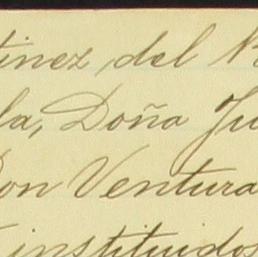 tinez del
la, Doña Ju
Don Ventura
instituidos